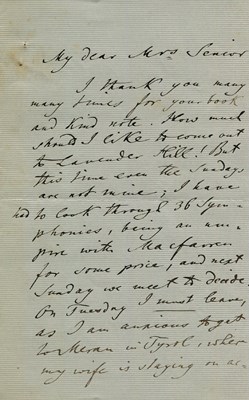 My dear Mrs Senior
I thank you many
many times for your book
and kind note. How much
should I like to come out
to Lavender Hill! But
this time even the Sundays
are not mine; I have
had to look through 36 Sym-
phonies, being an um-
pire with Macfarren
for some price, and next
Sunday we meet to decide.
On Tuesday I must leave,
as I am anxious to get
to Meran in Tyrol, where
my wife is staying on ac-